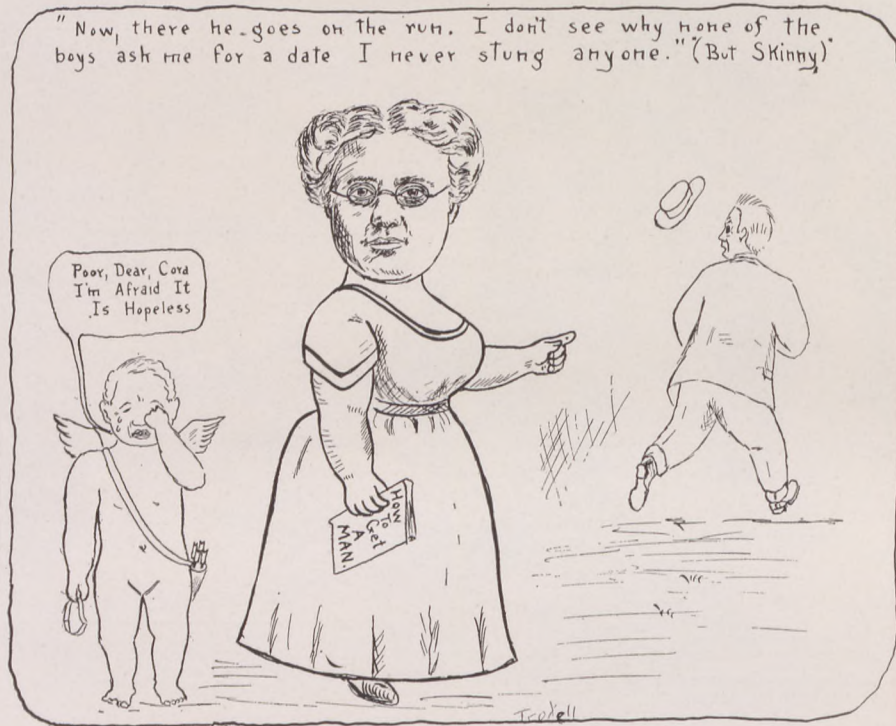 "Now, there he goes on the run. I don't see why none of the
boys ask me for a date I never stung anyone." "(But Skinny)"
Poor, Dear, Cora
I'm Afraid It
Is Hopeless
How
To
Get
A
MAN.